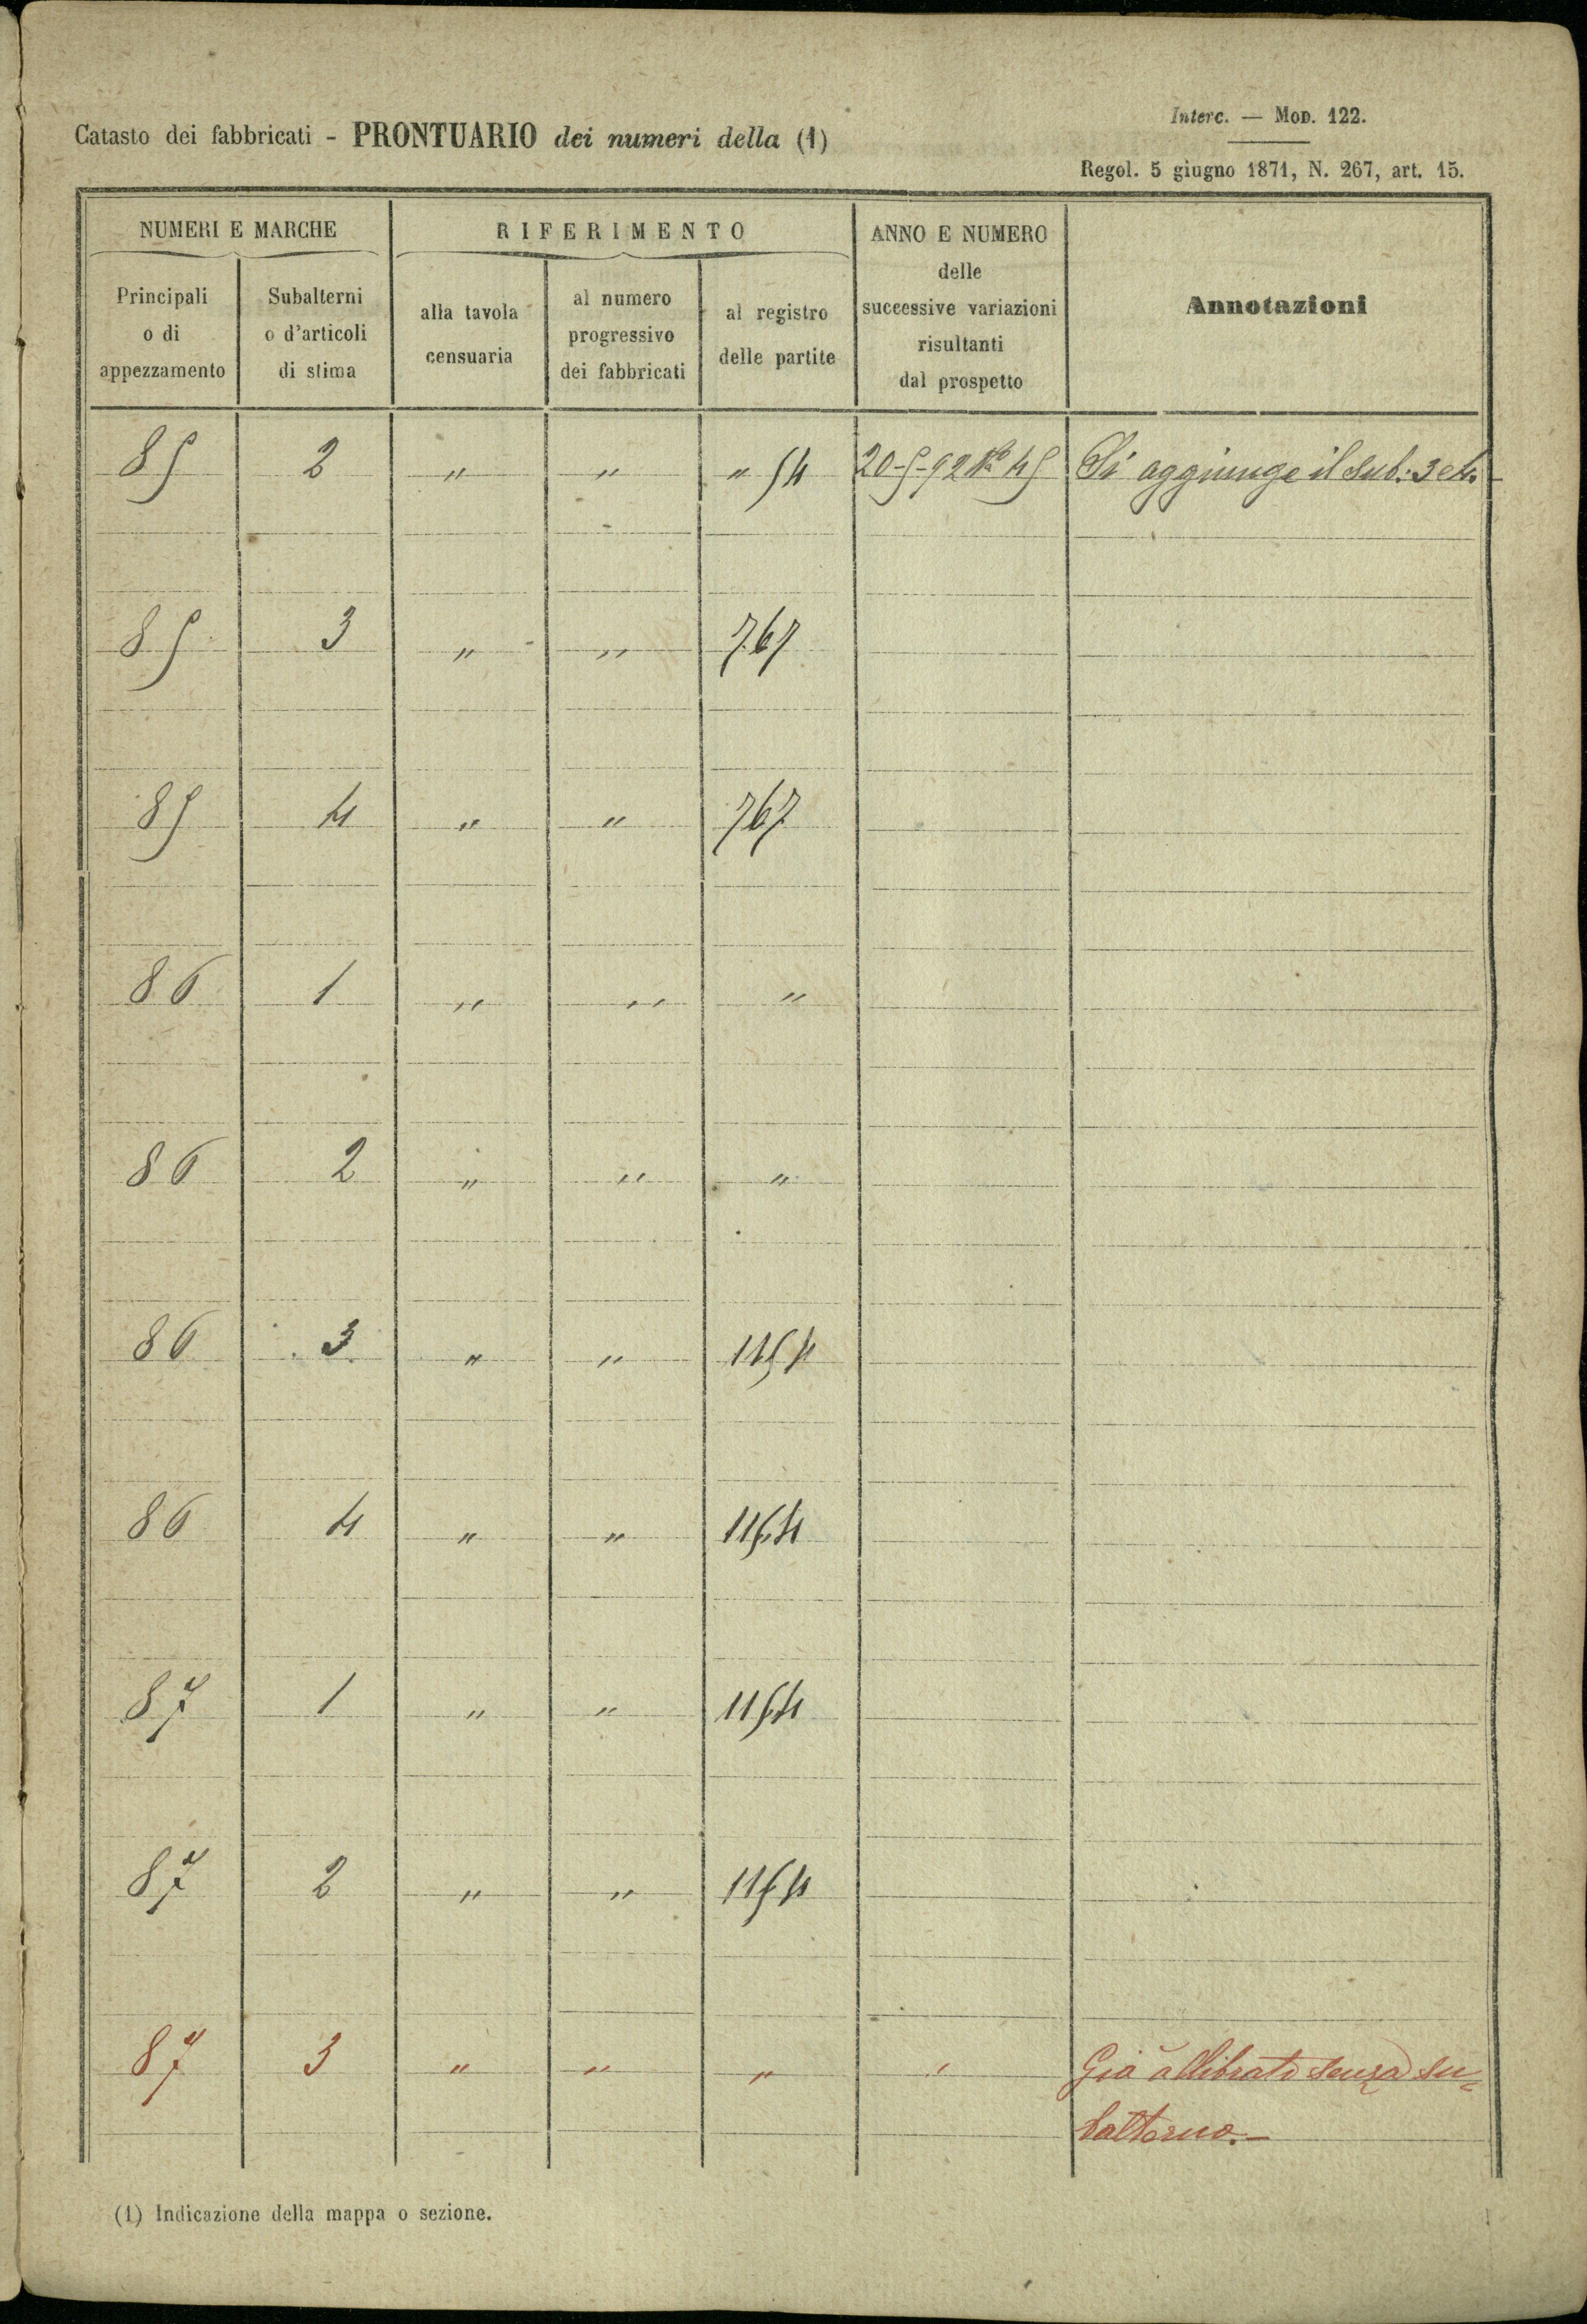 Catasto dei fabbricati - PRONTUARIO dei numeri della (1)
Interc. — Mod. 122.
Regol. 5 giugno 1871, N. 267, art. 15.
NUMERI E MARCHE
RIFERIMENTO
ANNO E NUMERO
delle
successive variazioni
risultanti
dal prospetto
Annotazioni
Principali
o di
appezzamento
Subalterni
o d'articoli
di stima
alla tavola
censuaria
al numero
progressivo
dei fabbricati
al registro
delle partite
85 2 " " " 54 20-5-92 No 45 Si aggiunge il sub. 3 e 4.
85 3 " " 767
85 4 " " 767
86 1 " " "
86 2 " " "
86 3 " " 1154
86 4 " " 1154
87 1 " " 1154
87 2 " " 1154
87 3 " " " " Già allibrato senza su=
balterno.-
(1) Indicazione della mappa o sezione.